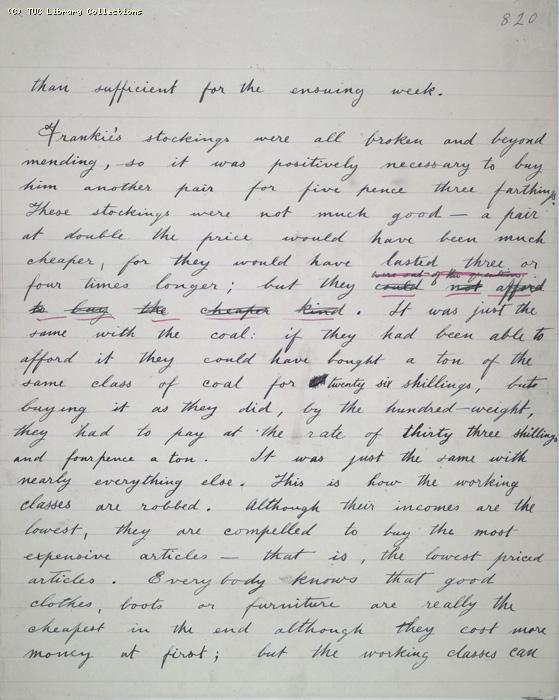 (C) TUC Library Collections
820
than sufficient for the ensuing week.
Frankie's stockings were all broken and beyond
mending, so it was positively necessary to buy
him another pair for five pence three farthings.
These stockings were not much good — a pair
at double the price would have been much
cheaper, for they would have lasted three or
were out of the question
four times longer; but they could not afford
to buy the cheaper kind. It was just the
same with the coal: if they had been able to
afford it they could have bought a ton of the
same class of coal for twenty six shillings, but
buying it as they did, by the hundred-weight,
they had to pay at the rate of thirty three shillings
and fourpence a ton. It was just the same with
nearly everything else. This is how the working
classes are robbed. Although their incomes are the
lowest, they are compelled to buy the most
expensive articles — that is, the lowest priced
articles. Everybody knows that good
clothes, boots or furniture are really the
cheapest in the end although they cost more
money at first; but the working classes can